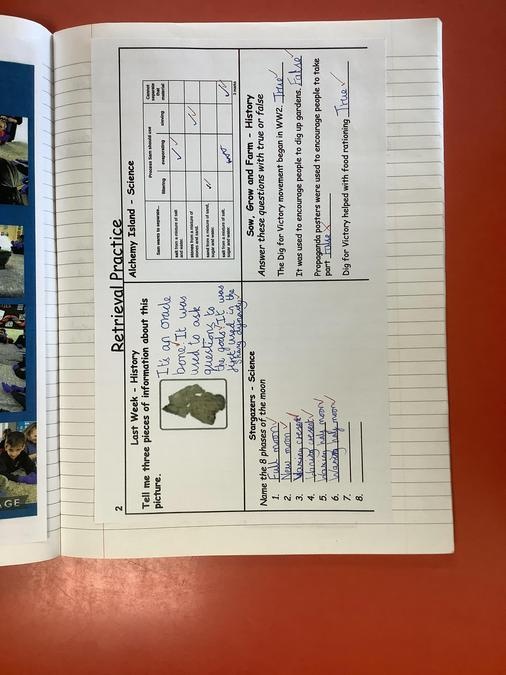 2
Retrieval Practice
Last Week - History
Tell me three pieces of information about this
picture.
It's an oracle
bone. It was
used to ask
questions to
the gods. It was
first used in the
Shang dynasty.
Alchemy Island - Science
Process Sam should use
Sam wants to separate...
filtering
evaporating
sieving
Cannot
separate
that
material
salt from a mixture of salt
and water.
stones from a mixture of
stones and sand.
sand from a mixture of sand,
sugar and water.
salt from a mixture of salt,
sugar and water.
3 marks
Stargazers - Science
Name the 8 phases of the moon
1. Full moon
2. New moon
3.
4.
5. half moon
6. half moon
7.
8.
Sow, Grow and Farm - History
Answer these questions with true or false
The Dig for Victory movement began in WW2. True
It was used to encourage people to dig up gardens. False
Propaganda posters were used to encourage people to take
part False
Dig for Victory helped with food rationing True
AGE